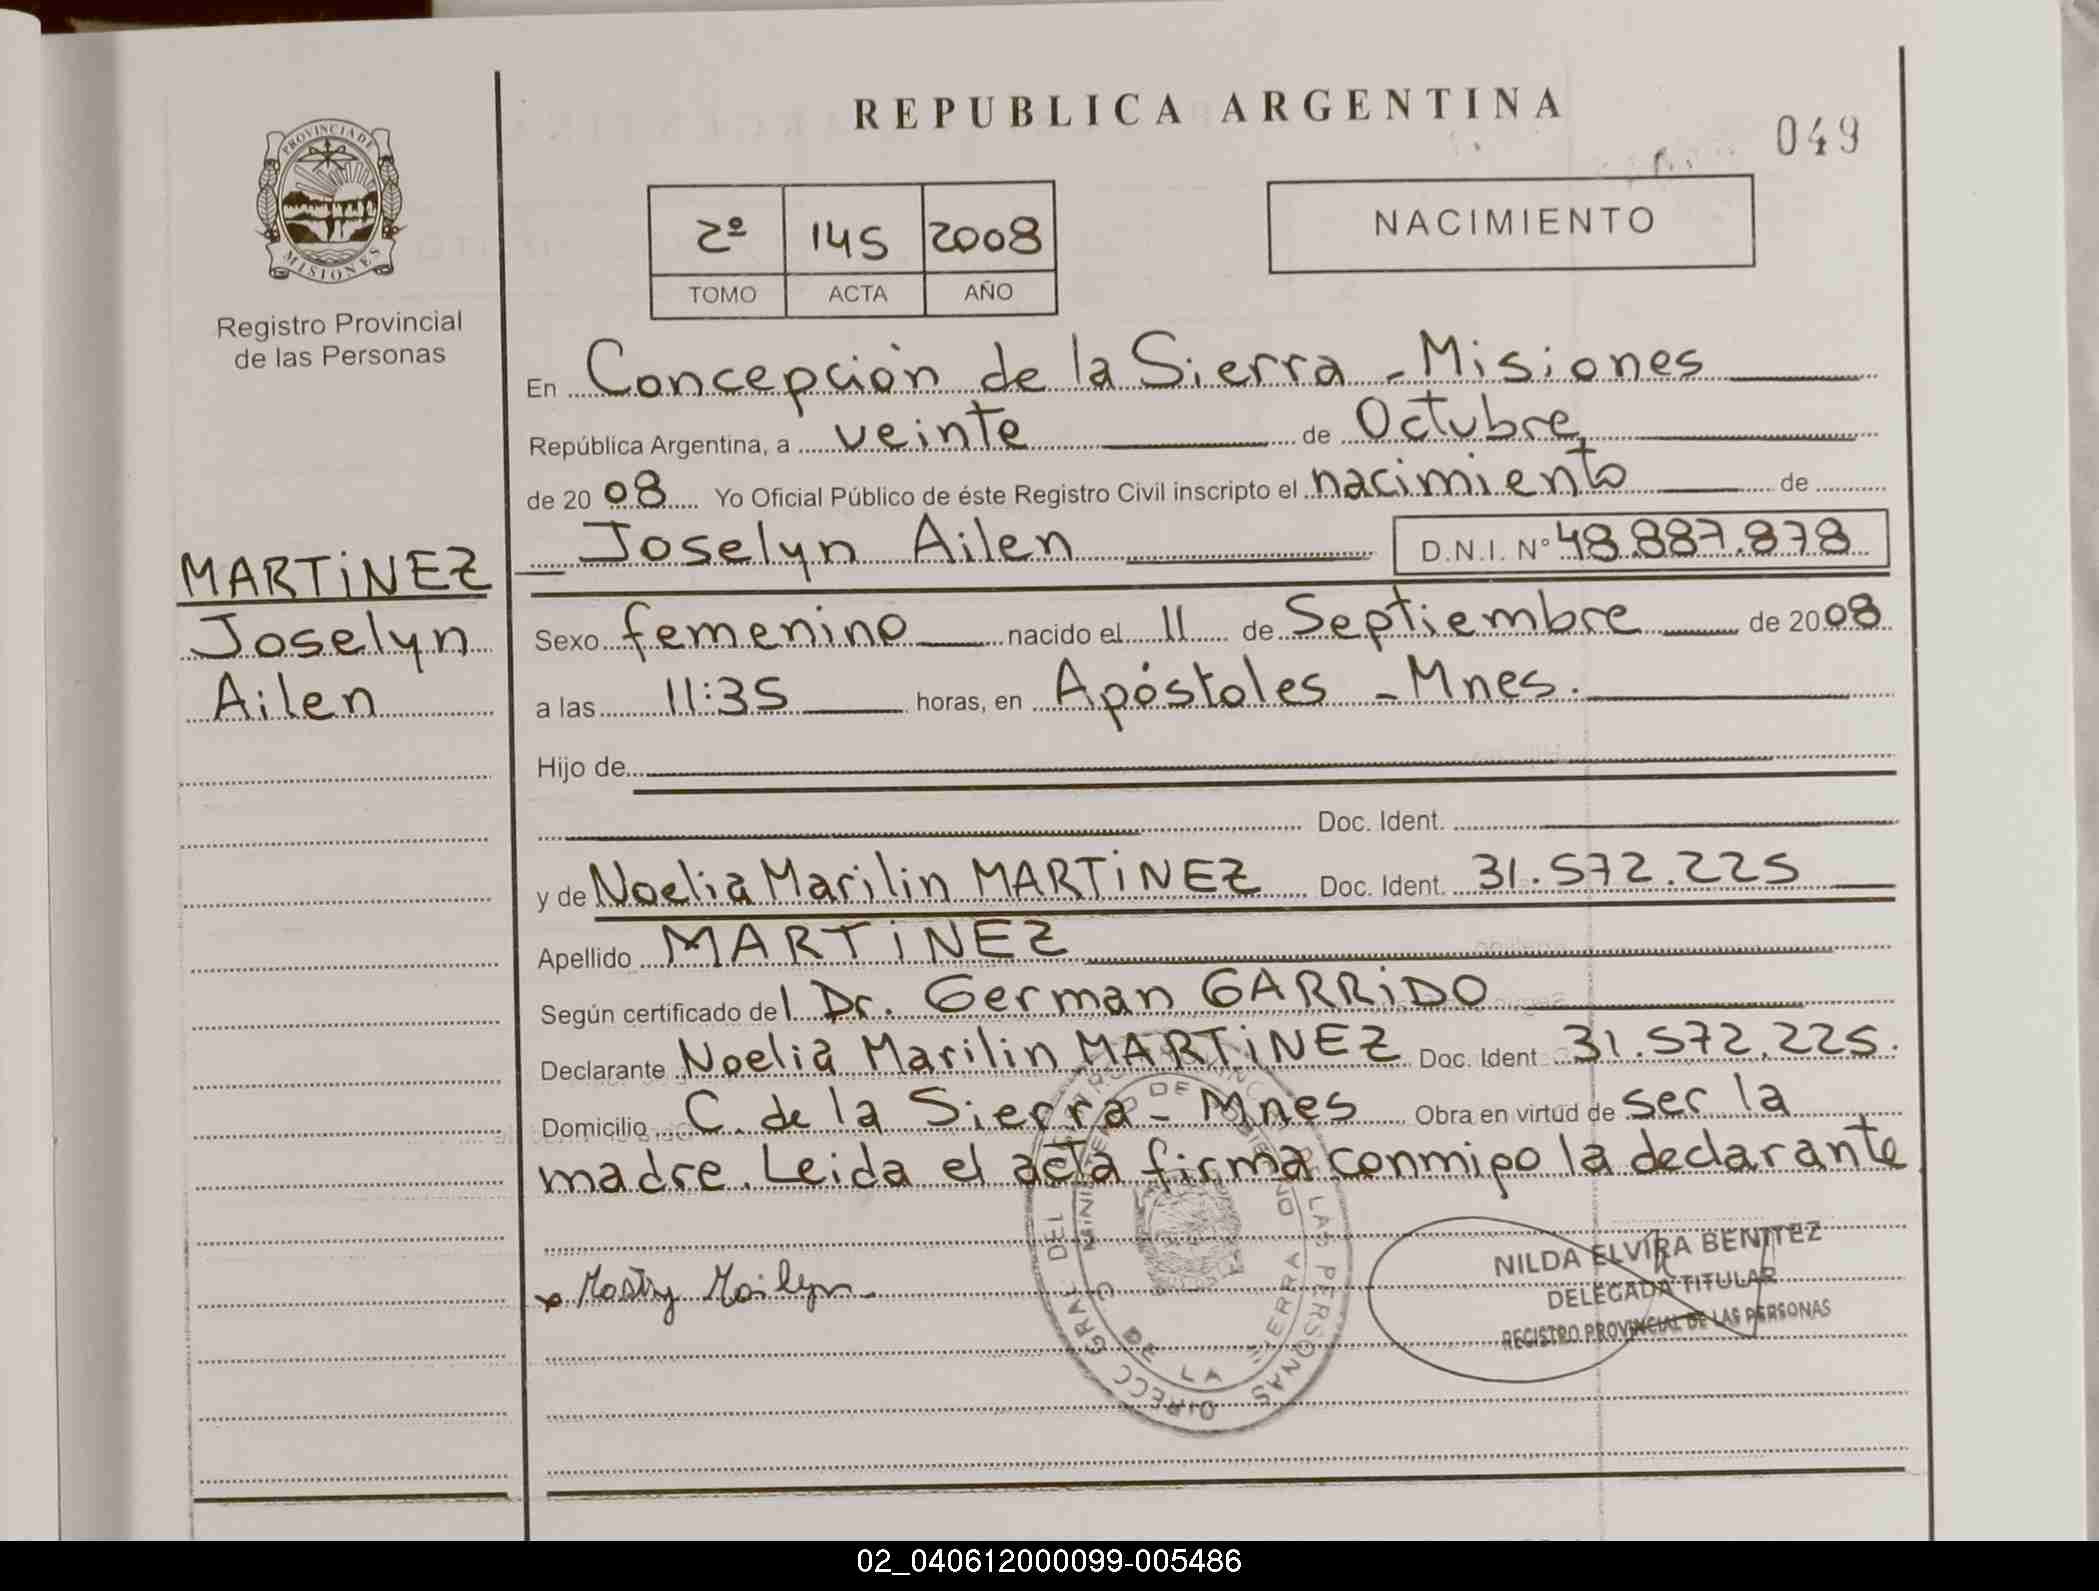 REPUBLICA ARGENTINA
049
PROVINCIA DE
MISIONES
Registro Provincial
de las Personas
2º 145 2008
TOMO ACTA AÑO
NACIMIENTO
En Concepción de la Sierra - Misiones
República Argentina, a veinte de Octubre
de 20 08 Yo Oficial Público de éste Registro Civil inscripto el nacimiento de
Joselyn Ailen D.N.I. Nº 48.887.878
MARTiNEZ
Joselyn
Ailen
Sexo femenino nacido el 11 de Septiembre de 2008
a las 11:35 horas, en Apóstoles - Mnes.
Hijo de
Doc. Ident.
y de Noelia Marilin MARTiNEZ Doc. Ident. 31.572.225
Apellido MARTiNEZ
Según certificado del Dr. German GARRiDO
Declarante Noelia Marilin MARTiNEZ Doc. Ident 31.572.225.
Domicilio C. de la Sierra - Mnes Obra en virtud de ser la
madre. Leida el acta firma conmigo la declarante
NILDA ELVIRA BENITEZ
DELEGADA TITULAR
REGISTRO PROVINCIAL DE LAS PERSONAS
DIRECC GRAL DEL LAS PERSONAS
DE LA SIERRA
02_040612000099-005486